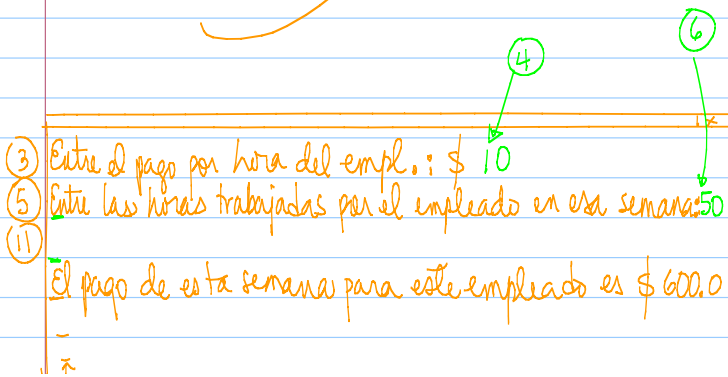 6
4
3 Entre el pago por hora del empl. : $ 10
5 Entre las horas trabajadas por el empleado en esa semana: 50
11
El pago de esta semana para este empleado es $ 600.0